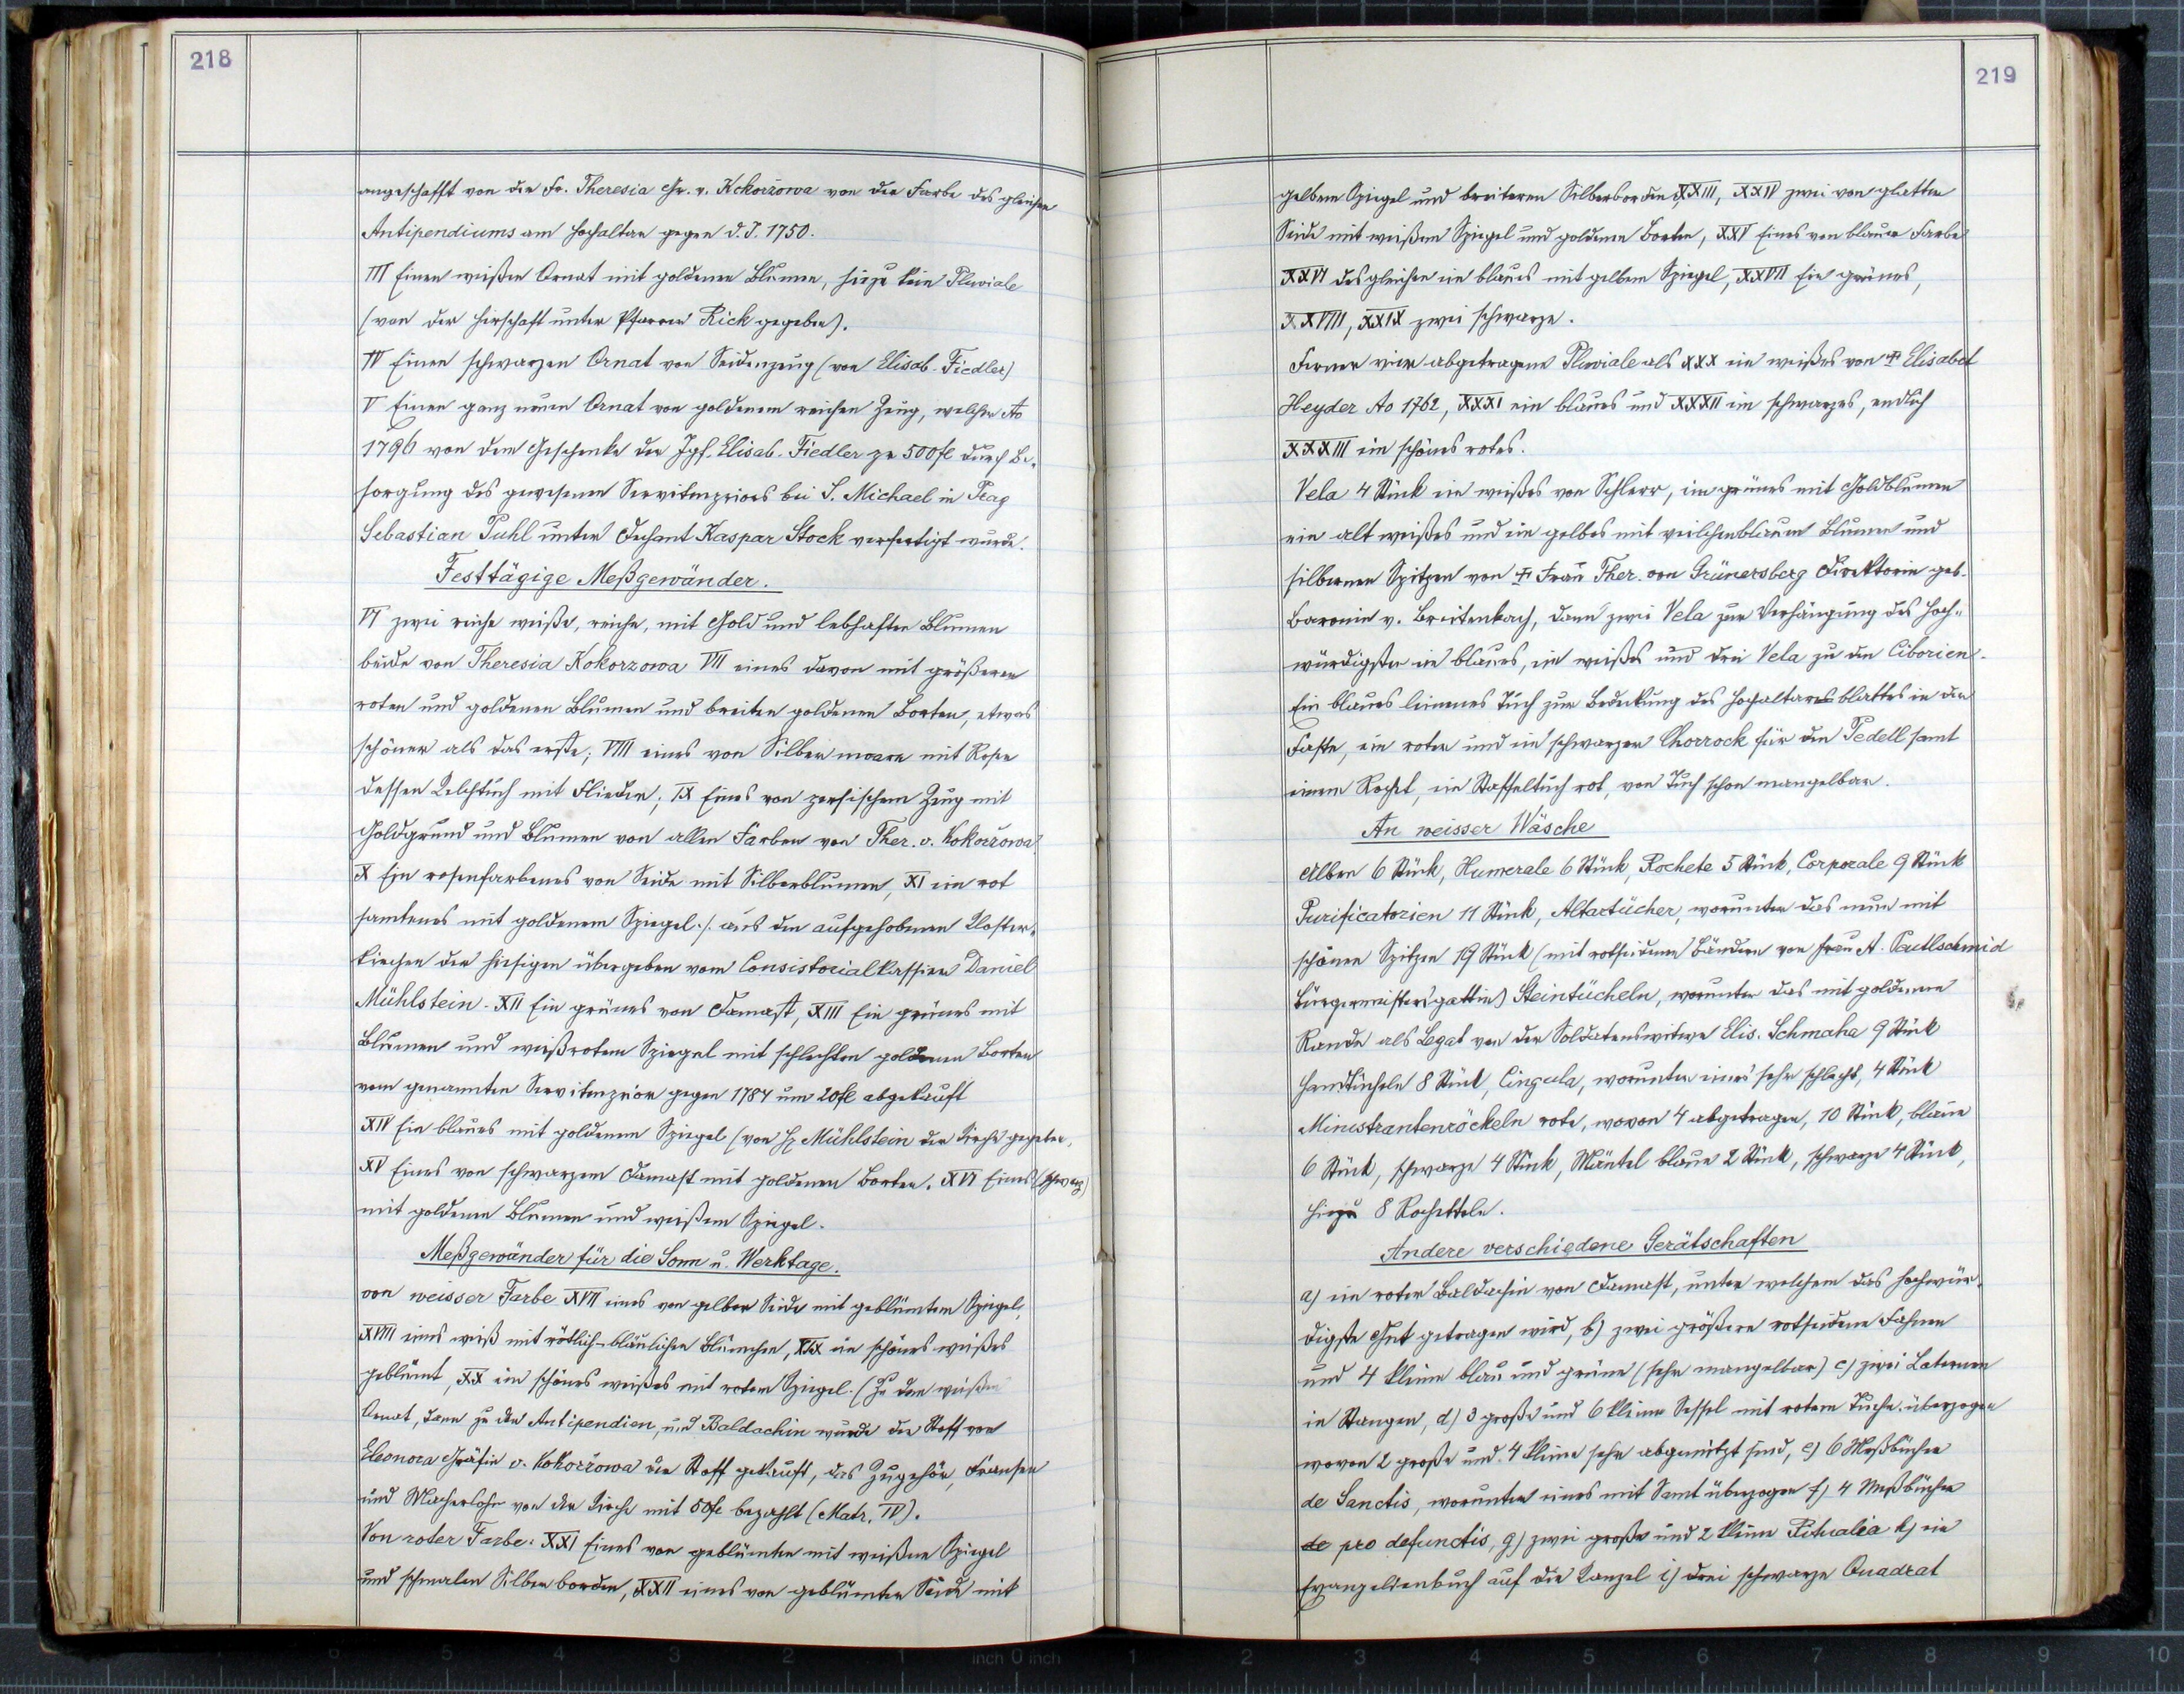 218
angeschafft von der Fr. Theresia Gr. v. Kokoržowa von der Farbe des gleichen
Antipendiums am Hochaltar gegen d. J. 1750.
III Einen weißen Ornat mit goldenen Blumen, hiezu kein Pluviale
(von der Herschaft unter Pfarrer Rick gegeben).
IV Einen schwarzen Ornat von Seidenzeug (von Elisab. Fiedler)
V Einen ganz neuen Ornat von goldenem reichen Zeug, welcher Ao
1796 von dem Geschenke der Jgf. Elisab. Fiedler zu 500 fl durch Be-
sorgung des gewesenen Servitenpriors bei S. Michael in Prag
Sebastian Puhl unter Dechant Kaspar Stock verfertigt wurde.
Festtägige Meßgewänder.
VI zwei reiche weiße, reiche, mit Gold und lebhaften Blumen
beide von Theresia Kokorzowa VII eines davon mit größeren
roten und goldenen Blumen und breiten goldenen Borten, etwas
schöner als das erste; VIII eines von Silber moare mit Rosen
dessen Kelchtuch mit Flieder; IX Eines von persischem Zeug mit
Goldgrund und Blumen von allen Farben von Ther. v. Kokoržowa
X Ein rosenfarbenes von Seide mit Silberblumen, XI ein rot
samtenes mit goldenem Spiegel ./. aus den aufgehobenen Kloster-
kirchen der hiesigen übergeben vom Consistorialkassier Daniel
Mühlstein. XII Ein grünes von Damast, XIII Ein grünes mit
Blumen und weißrotem Spiegel mit schlechten goldenen Borten
vom genannten Servitenprior gegen 1784 um 20 fl abgekauft
XIV Ein blaues mit goldenem Spiegel (von H. Mühlstein der Kirche gegeben,
XV Eines von schwarzem Damast mit goldenen Borten. XVI Eines (schwarz)
mit goldenen Blumen und weißem Spiegel.
Meßgewänder für die Sonn u. Werktage.
von weisser Farbe XVII eines von gelber Seide mit geblümtem Spiegel,
XVIII eines weiß mit rötlich-bläulichen Blümchen, XIX ein schönes weißes
geblümt, XX ein schönes weißes mit rotem Spiegel. (Zu dem weißen
Ornat, dann zu den Antipendien, und Baldachin wurde der Stoff von
Eleonora Gräfin v. Kokoržowa der Stoff gekauft, das Zugehör, Fransen
und Macherlohn von der Kirche mit 50 fl bezahlt (Matr. IV).
Von roter Farbe: XXI Eines von geblümten mit weißem Spiegel
und schmalen Silberborden, XXII eines von geblümter Seide mit
219
gelbem Spiegel und breiteren Silberborden XXIII, XXIV zwei von glatter
Seide mit weißem Spiegel und goldenen Borten, XXV Eines von blauer Farbe
XXVI desgleichen ein blaues mit gelbem Spiegel, XXVII Ein grünes,
XXVIII, XXIX zwei schwarze.
Ferner vier abgetragene Pluviale als XXX ein weißes von + Elisabet
Heyder Ao 1762, XXXI ein blaues und XXXII ein schwarzes, endlich
XXXIII ein schönes rotes.
Vela 4 Stück ein weißes von Schlerr, ein grünes mit Goldblumen
ein alt weißes und ein gelbes mit veilchenblauen Blumen und
silbernen Spitzen von + Frau Ther. von Grünersberg Direktorin geb.
Baronin v. Breitenbach, dann zwei Vela zur Verhängung des Hoch-
würdigsten ein blaues, ein weißes und drei Vela zu den Ciborien.
Ein blaues leinenes Tuch zur Bedeckung des Hochaltarblattes in der
Faste, ein roter und ein schwarzer Chorrock für den Pedell samt
einem Rochet, ein Staffeltuch rot, von Tuch schon mangelbar.
An weisser Wäsche
Alben 6 Stück, Humerale 6 Stück, Rochete 5 Stück, Corporale 9 Stück
Purificatorien 11 Stück, Altartücher, worunter das neue mit
schönen Spitzen 19 Stück (mit rotseidenen Bändern von Frau A. Pautlschmid
Bürgermeistersgattin) Steintücheln, worunter das mit goldenem
Rande als Legat von der Soldatenswitwe Elis. Schmaha 9 Stück
Handtücheln 8 Stück, Cingula, worunter eines sehr schlecht, 4 Stück
Ministrantenröckeln rote, wovon 4 abgetragen, 10 Stück, blaue
6 Stück, schwarze 4 Stück, Mäntel blaue 2 Stück, schwarze 4 Stück,
hiezu 8 Rochetteln.
Andere verschiedene Gerätschaften
a) ein roter Baldachin von Damast, unter welchem das hochwür-
digste Gut getragen wird, b) zwei größere rotseidene Fahnen
und 4 kleine blau und grüne (sehr mangelbar) c) zwei Laternen
in Stangen, d) 3 große und 6 kleine Sessel mit rotem Tuche überzogen
wovon 2 große und 4 kleine sehr abgenützt sind, e) 6 Meßbücher
de Sanctis, worunter eines mit Samt überzogen f) 4 Meßbücher
de pro defunctis, g) zwei große und 2 kleine Ritualia h) ein
Evangelienbuch auf die Kanzel i) drei schwarze Quadrat